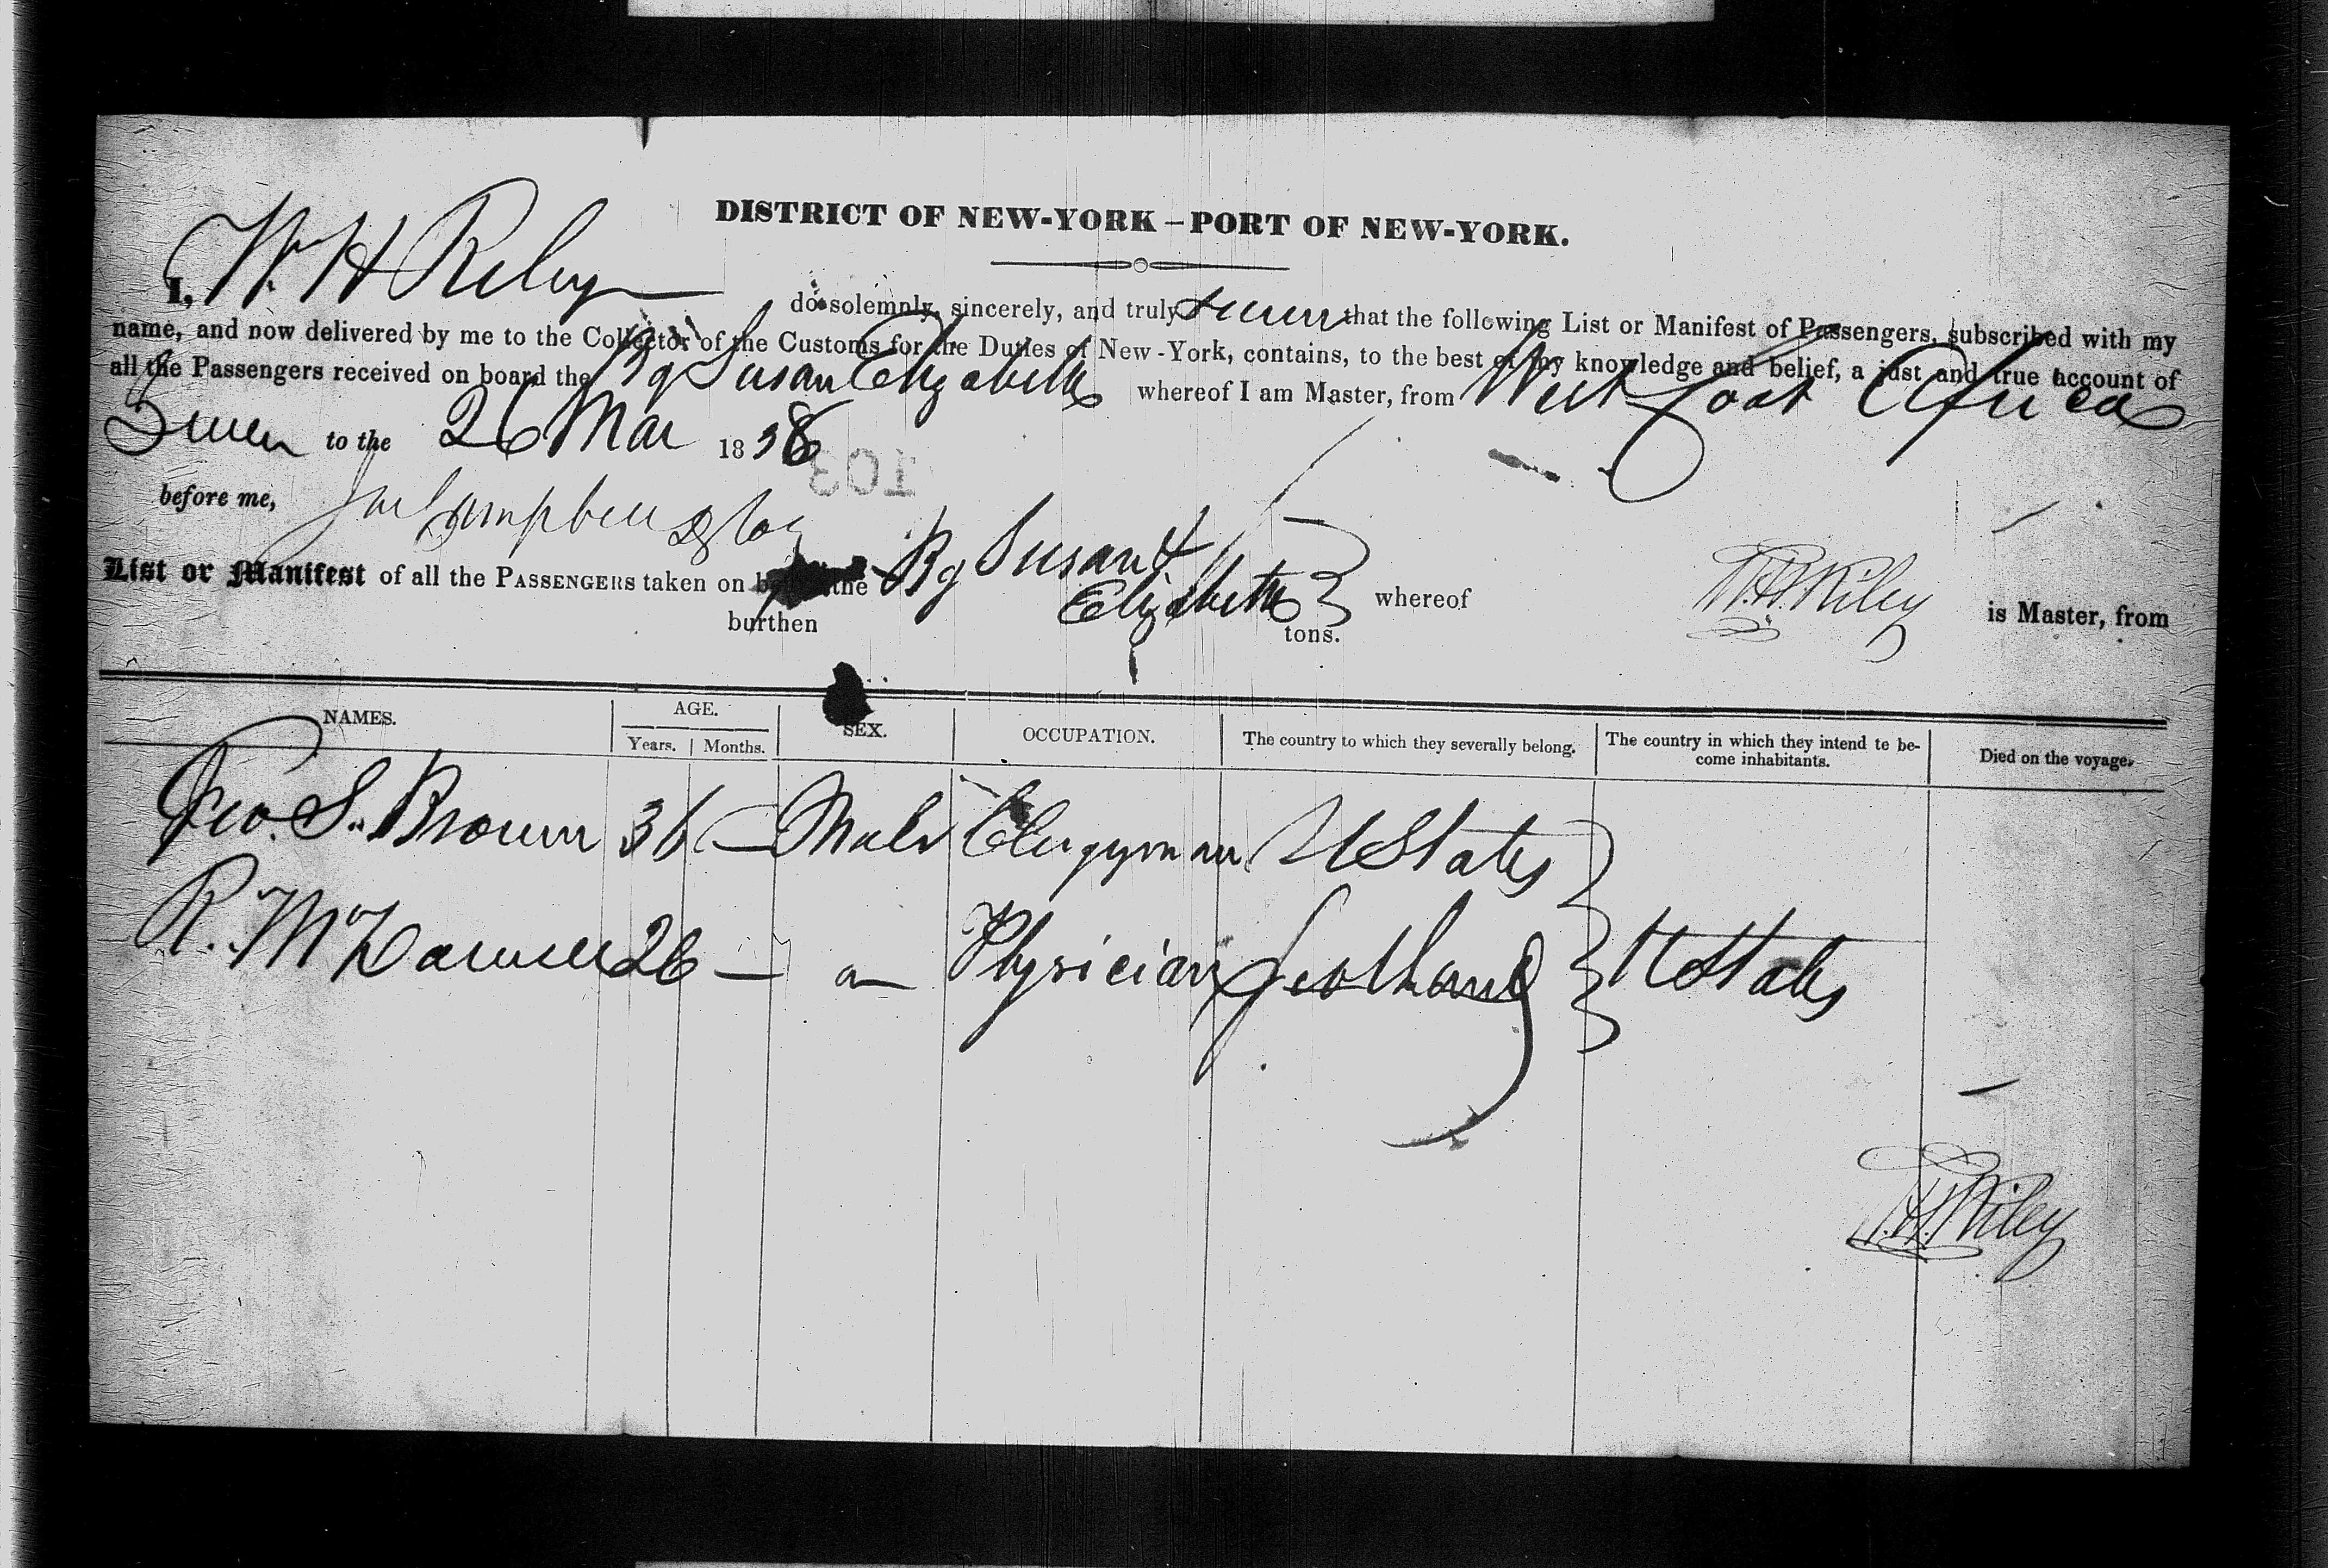 DISTRICT OF NEW-YORK – PORT OF NEW-YORK.
I, W. H Riley do solemnly, sincerely, and truly swear that the following List or Manifest of Passengers, subscribed with my
name, and now delivered by me to the Collector of the Customs for the Duties of New-York, contains, to the best of my knowledge and belief, a just and true account of
all the Passengers received on board the Bg Susan Elizabeth whereof I am Master, from West Coast Africa
Sworn to the 26 Mar 1838
103
before me, Campbell
List or Manifest of all the PASSENGERS taken on board the Bg Susan & Elizabeth whereof W. H. Riley is Master, from
burthen tons.
NAMES. AGE. Years. Months. SEX. OCCUPATION. The country to which they severally belong. The country in which they intend te become inhabitants. Died on the voyage.
Geo. S. Brown 36 — Male Clergyman U States
R. McDowell 26 — Physician Scotland U States
W. H. Riley